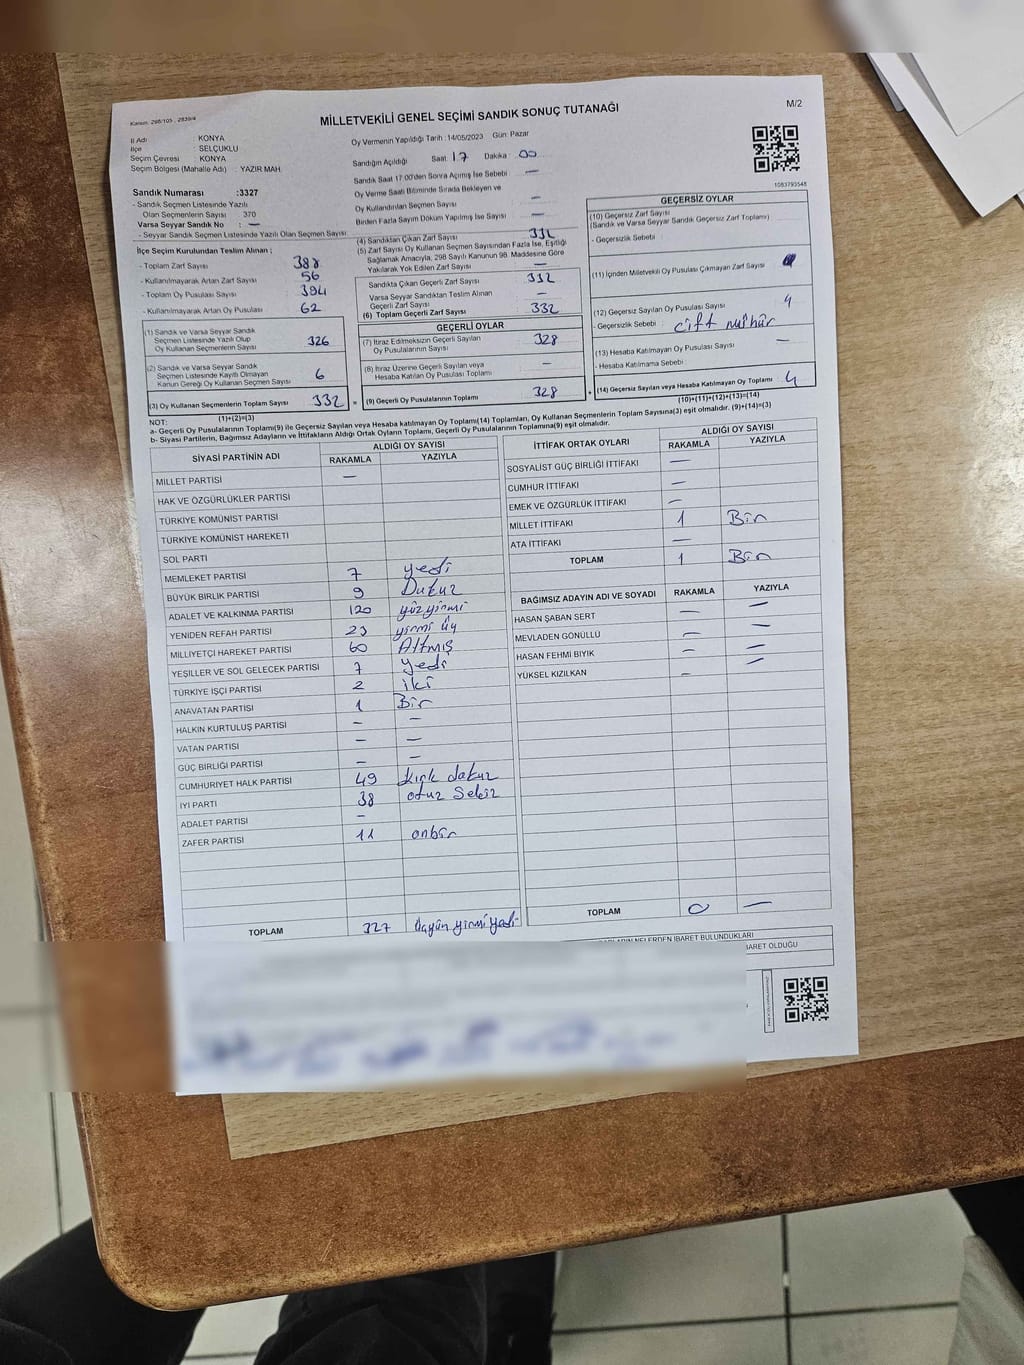 Kanun: 298/105 , 2839/4
MİLLETVEKİLİ GENEL SEÇİMİ SANDIK SONUÇ TUTANAĞI
M/2
İl Adı : KONYA
İlçe : SELÇUKLU
Seçim Çevresi : KONYA
Seçim Bölgesi (Mahalle Adı) : YAZIR MAH.
Sandık Numarası :3327
- Sandık Seçmen Listesinde Yazılı
Olan Seçmenlerin Sayısı 370
Varsa Seyyar Sandık No : —
- Seyyar Sandık Seçmen Listesinde Yazılı Olan Seçmen Sayısı:
Oy Vermenin Yapıldığı Tarih : 14/05/2023 Gün: Pazar
Sandığın Açıldığı Saat: 17 Dakika : 00
Sandık Saat 17:00'den Sonra Açımış İse Sebebi —
Oy Verme Saati Bitiminde Sırada Bekleyen ve
Oy Kullandırılan Seçmen Sayısı —
Birden Fazla Sayım Döküm Yapılmış İse Sayısı —
1083793548
İlçe Seçim Kurulundan Teslim Alınan ;
- Toplam Zarf Sayısı 388
- Kullanılmayarak Artan Zarf Sayısı 56
- Toplam Oy Pusulası Sayısı 394
- Kullanılmayarak Artan Oy Pusulası 62
(1) Sandık ve Varsa Seyyar Sandık
Seçmen Listesinde Yazılı Olup
Oy Kullanan Seçmenlerin Sayısı 326
(2) Sandık ve Varsa Seyyar Sandık
Seçmen Listesinde Kayıtlı Olmayan
Kanun Gereği Oy Kullanan Seçmen Sayısı 6
(3) Oy Kullanan Seçmenlerin Toplam Sayısı 332 =
(1)+(2)=(3)
(4) Sandıktan Çıkan Zarf Sayısı 332
(5) Zarf Sayısı Oy Kullanan Seçmen Sayısından Fazla İse, Eşitliği
Sağlamak Amacıyla, 298 Sayılı Kanunun 98. Maddesine Göre
Yakılarak Yok Edilen Zarf Sayısı —
Sandıkta Çıkan Geçerli Zarf Sayısı 332
Varsa Seyyar Sandıktan Teslim Alınan
Geçerli Zarf Sayısı —
(6) Toplam Geçerli Zarf Sayısı 332
GEÇERLİ OYLAR
(7) İtiraz Edilmeksizin Geçerli Sayılan
Oy Pusulalarının Sayısı 328
(8) İtiraz Üzerine Geçerli Sayılan veya
Hesaba Katılan Oy Pusulası Toplamı —
(9) Geçerli Oy Pusulalarının Toplamı 328 +
GEÇERSİZ OYLAR
(10) Geçersiz Zarf Sayısı
(Sandık ve Varsa Seyyar Sandık Geçersiz Zarf Toplamı)
- Geçersizlik Sebebi :
(11) İçinden Milletvekili Oy Pusulası Çıkmayan Zarf Sayısı
(12) Geçersiz Sayılan Oy Pusulası Sayısı 4
- Geçersizlik Sebebi : çift mühür
(13) Hesaba Katılmayan Oy Pusulası Sayısı —
- Hesaba Katılmama Sebebi :
(14) Geçersiz Sayılan veya Hesaba Katılmayan Oy Toplamı 4
(10)+(11)+(12)+(13)=(14)
NOT:
a- Geçerli Oy Pusulalarının Toplamı(9) ile Geçersiz Sayılan veya Hesaba Katılmayan Oy Toplamı(14) Toplamları, Oy Kullanan Seçmenlerin Toplam Sayısına(3) eşit olmalıdır. (9)+(14)=(3)
b- Siyasi Partilerin, Bağımsız Adayların ve İttifakların Aldığı Ortak Oyların Toplamı, Geçerli Oy Pusulalarının Toplamına(9) eşit olmalıdır.
SİYASİ PARTİNİN ADI ALDIĞI OY SAYISI
RAKAMLA YAZIYLA
MİLLET PARTİSİ —
HAK VE ÖZGÜRLÜKLER PARTİSİ
TÜRKİYE KOMÜNİST PARTİSİ
TÜRKİYE KOMÜNİST HAREKETİ
SOL PARTİ
MEMLEKET PARTİSİ 7 yedi
BÜYÜK BİRLİK PARTİSİ 9 Dokuz
ADALET VE KALKINMA PARTİSİ 120 yüzyirmi
YENİDEN REFAH PARTİSİ 23 yirmi üç
MİLLİYETÇİ HAREKET PARTİSİ 60 Altmış
YEŞİLLER VE SOL GELECEK PARTİSİ 7 yedi
TÜRKİYE İŞÇİ PARTİSİ 2 iki
ANAVATAN PARTİSİ 1 Bir
HALKIN KURTULUŞ PARTİSİ — —
VATAN PARTİSİ — —
GÜÇ BİRLİĞİ PARTİSİ — —
CUMHURİYET HALK PARTİSİ 49 kırk dokuz
İYİ PARTİ 38 otuz Sekiz
ADALET PARTİSİ —
ZAFER PARTİSİ 11 onbir
TOPLAM 327 üçyüz yirmi yedi
İTTİFAK ORTAK OYLARI ALDIĞI OY SAYISI
RAKAMLA YAZIYLA
SOSYALİST GÜÇ BİRLİĞİ İTTİFAKI —
CUMHUR İTTİFAKI —
EMEK VE ÖZGÜRLÜK İTTİFAKI —
MİLLET İTTİFAKI 1 Bir
ATA İTTİFAKI —
TOPLAM 1 Bir
BAĞIMSIZ ADAYIN ADI VE SOYADI RAKAMLA YAZIYLA
HASAN ŞABAN SERT — —
MEVLADEN GÖNÜLLÜ — —
HASAN FEHMİ BIYIK — —
YÜKSEL KIZILKAN — —
TOPLAM 0 —
NELERDEN İBARET BULUNDUKLARI
İBARET OLDUĞU